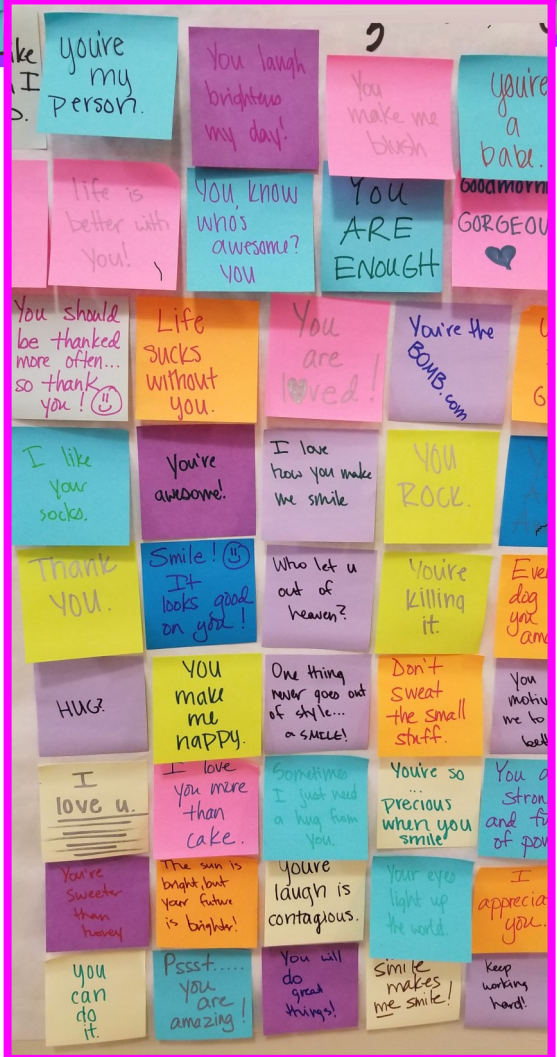 ke
I
you're
my
person.
You laugh
brightens
my day!
You
make me
blush
you're
a
babe.
life is
better with
You!
You, know
who's
awesome?
you
You
ARE
ENOUGH
Goodmorn
GORGEOU
You should
be thanked
more often...
so thank
you!
Life
sucks
without
you.
You
are
loved!
You're the
BOMB.com
I like
your
socks.
You're
awesome!
I love
how you make
me smile
YOU
ROCK.
Thank
YOU.
Smile!
It
looks good
on you!
Who let u
out of
heaven?
You're
killing
it.
Eve
dog
you
am
HUG?
YOU
make
me
happy.
One thing
never goes out
of style...
a SMILE!
Don't
sweat
the small
stuff.
You
motiv
me to
bett
I
love u.
I love
you more
than
cake.
Sometimes
I just need
a hug from
you.
You're so
...
precious
when you
smile
You a
stron
and fu
of pow
You're
sweeter
than
honey
The sun is
bright, but
your future
is brighter!
youre
laugh is
contagious.
Your eyes
light up
the world.
I
apprecia
you.
you
can
do
it.
Pssst.....
you
are
amazing!
You will
do
great
things!
smile
makes
me smile!
keep
working
hard!